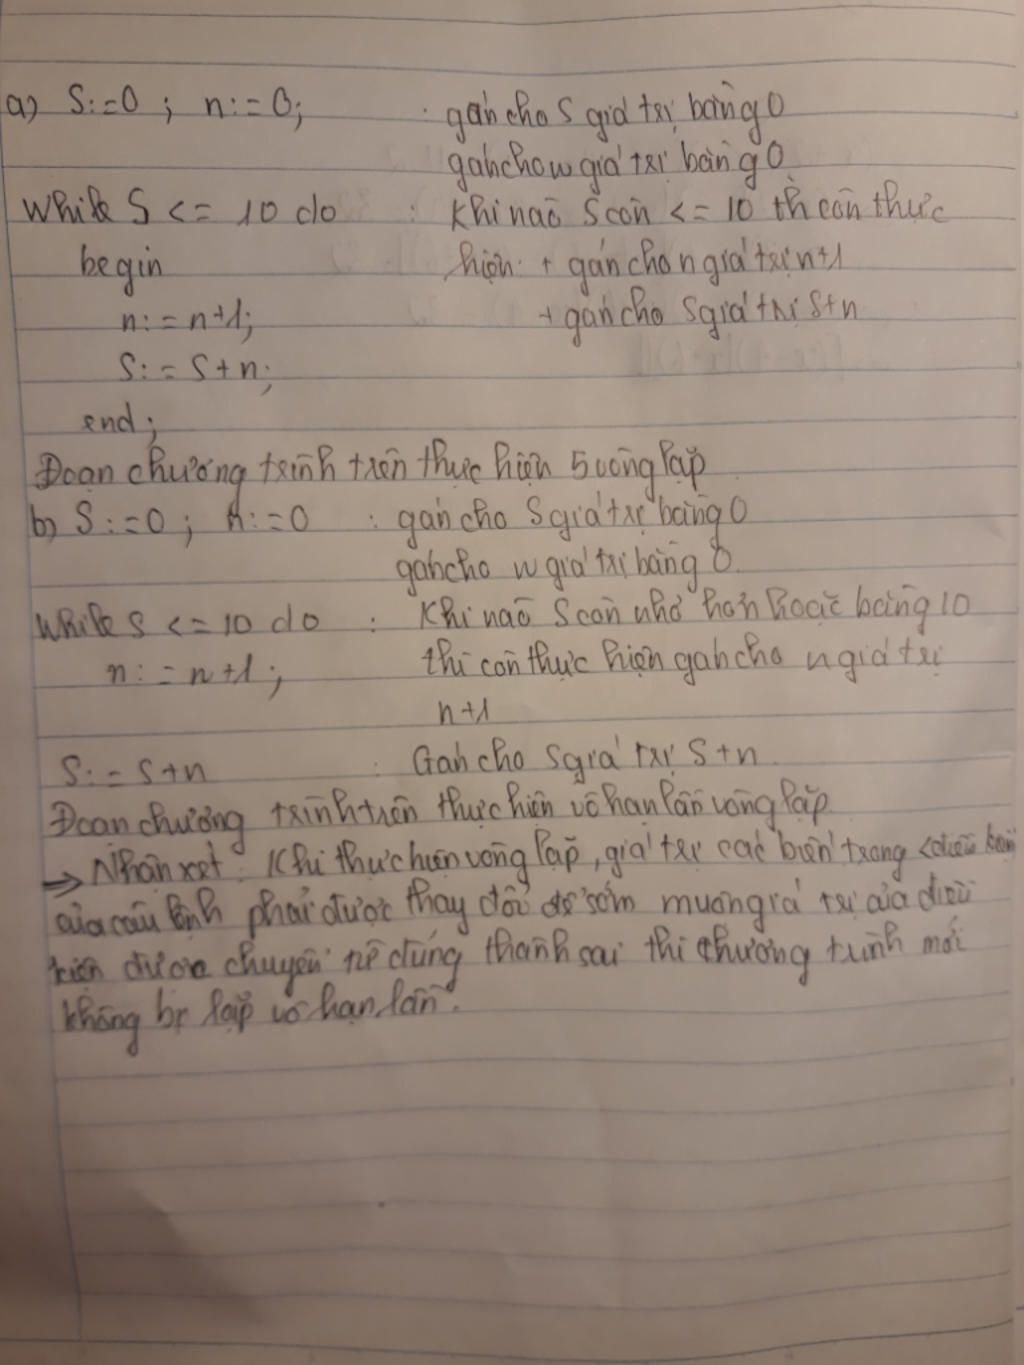 a) S:=0 ; n:=0; : gán cho S giá trị bằng 0
gán cho n giá trị bằng 0
While S <= 10 do : Khi nào S còn <= 10 th còn thực
begin hiện: + gán cho n giá trị n+1
n:=n+1; + gán cho S giá trị S+n
S:=S+n;
end;
Đoạn chương trình trên thực hiện 5 vòng lặp
b) S:=0; n:=0 : gán cho S giá trị bằng 0
gán cho n giá trị bằng 0.
While S <= 10 do : Khi nào S còn nhỏ hơn hoặc bằng 10
n:=n+1; thì còn thực hiện gán cho n giá trị
n+1
S:=S+n : Gán cho S giá trị S+n
Đoạn chương trình trên thực hiện vô hạn lần vòng lặp.
=> Nhận xét: Khi thực hiện vòng lặp, giá trị các biến trong <điều kiện
của câu lệnh phải được thay đổi để sớm muộn giá trị của điều
kiện được chuyển từ đúng thành sai thì chương trình mới
không bị lặp vô hạn lần.